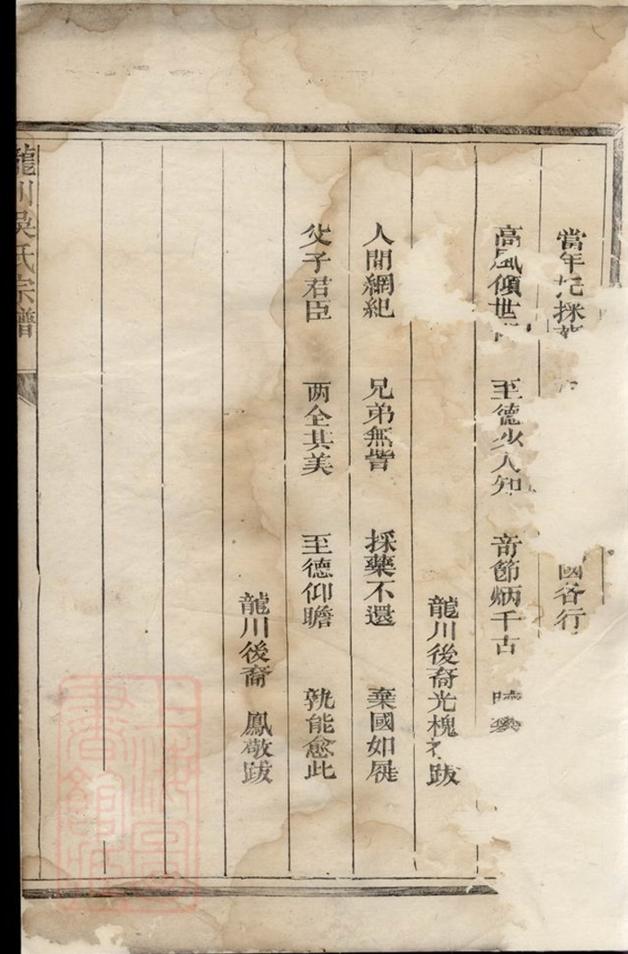 當年 採
國各行
高風傾世 至德少人知 奇節炳千古
龍川後裔光槐 跋
人間綱紀 兄弟無訾 採藥不還 棄國如屣
父子君臣 两全其美 至德仰瞻 孰能愈此
龍川後裔 鳳敬跋
龍川吳氏宗譜